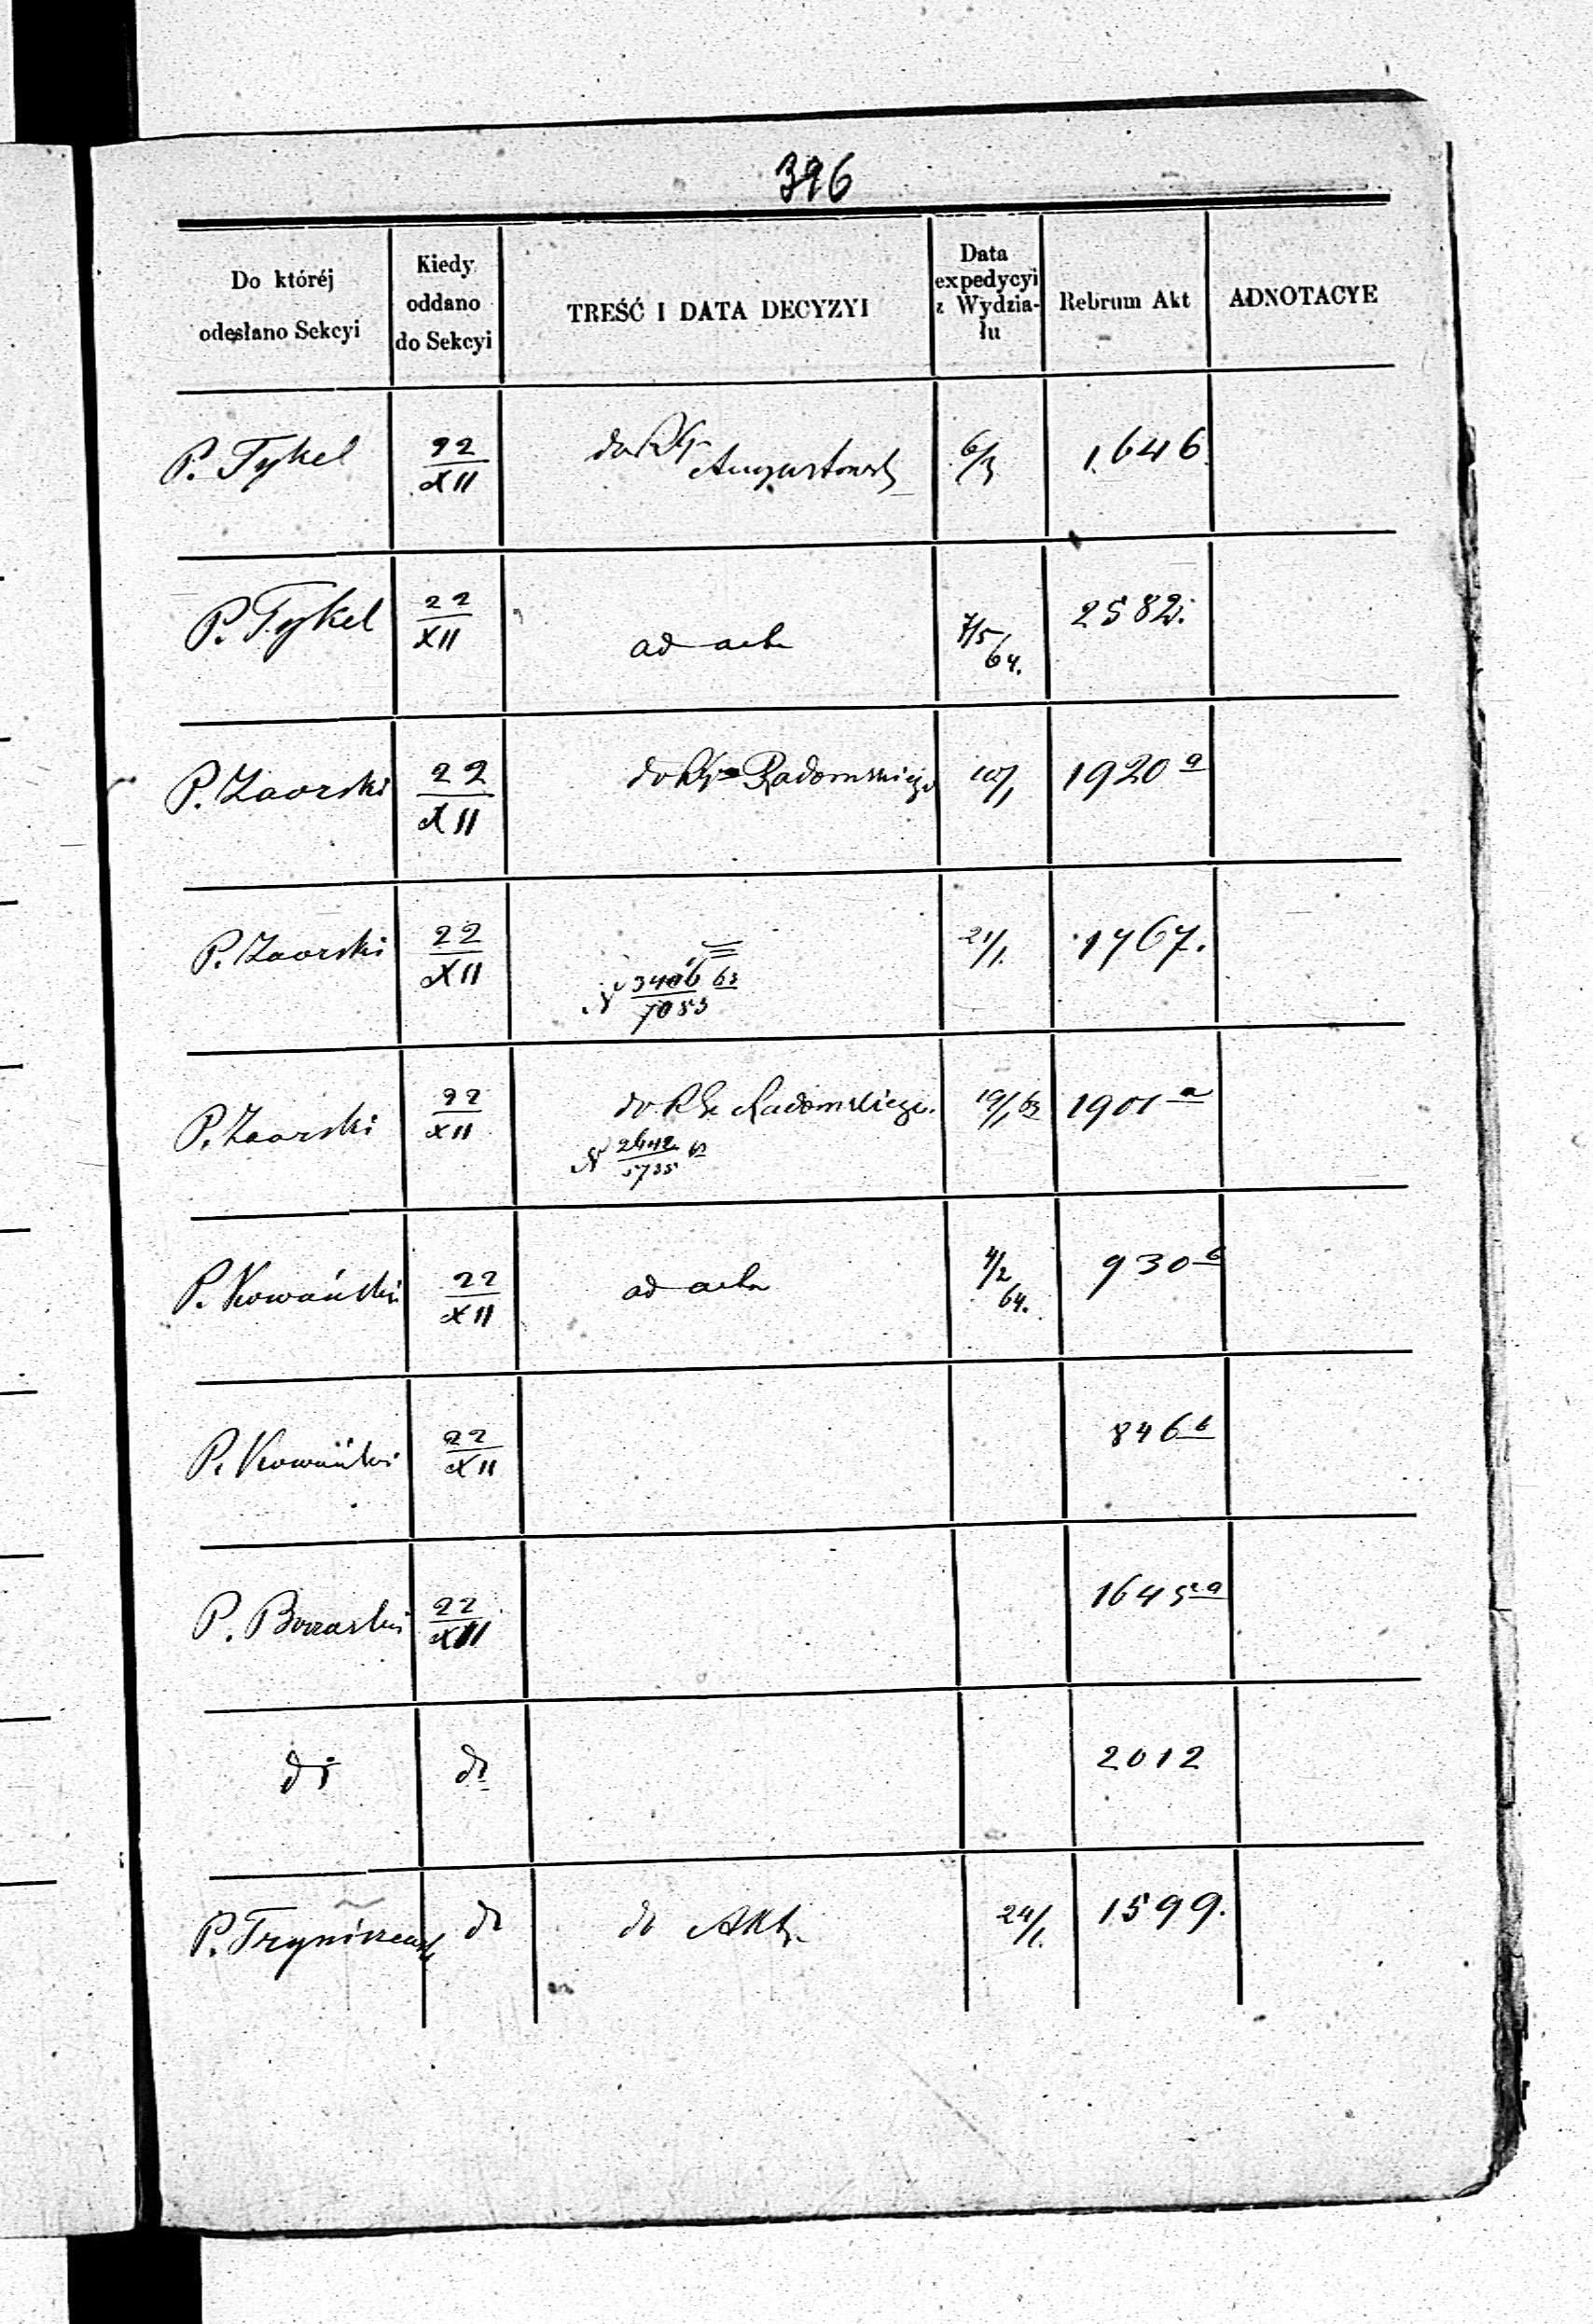 396
Do któréj odesłano Sekcyi
Kiedy oddano do Sekcyi
TREŚĆ I DATA DECYZYI
Data expedycyi z Wydziału
Rebrum Akt
ADNOTACYE
P. Tykel 22/XII do RG Augustowsk 6/3 1646
P. Tykel 22/XII ad acta 7/5 64. 2582.
P. Zaorski 22/XII do RG Radomskiego 10/1 1920 a
P. Zaorski 22/XII 21/1. 1767.
N 3406/7053 63
P. Zaorski 22/XII do RG Radomskiego. 19/1 63 1901 a
N 2642/5735 63
P. Kowański 22/XII ad acta 4/2 64. 930 b
P. Kowański 22/XII 846 b
P. 22/XII 1645 a
dt dt 2012
P. dt do Akt 24/1. 1599.